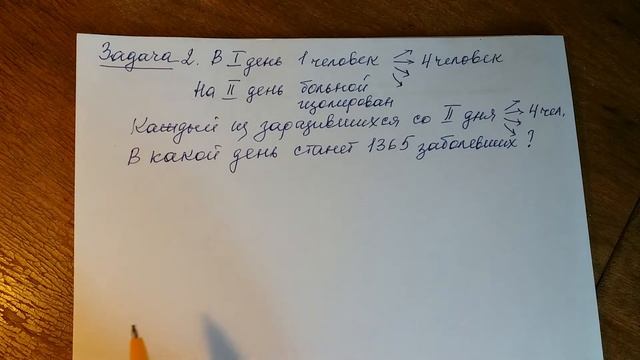 Задача 2. В I день 1 человек 4 человек
На II день больной
изолирован
Каждый из заразившихся со II дня 4 чел.
В какой день станет 1365 заболевших?